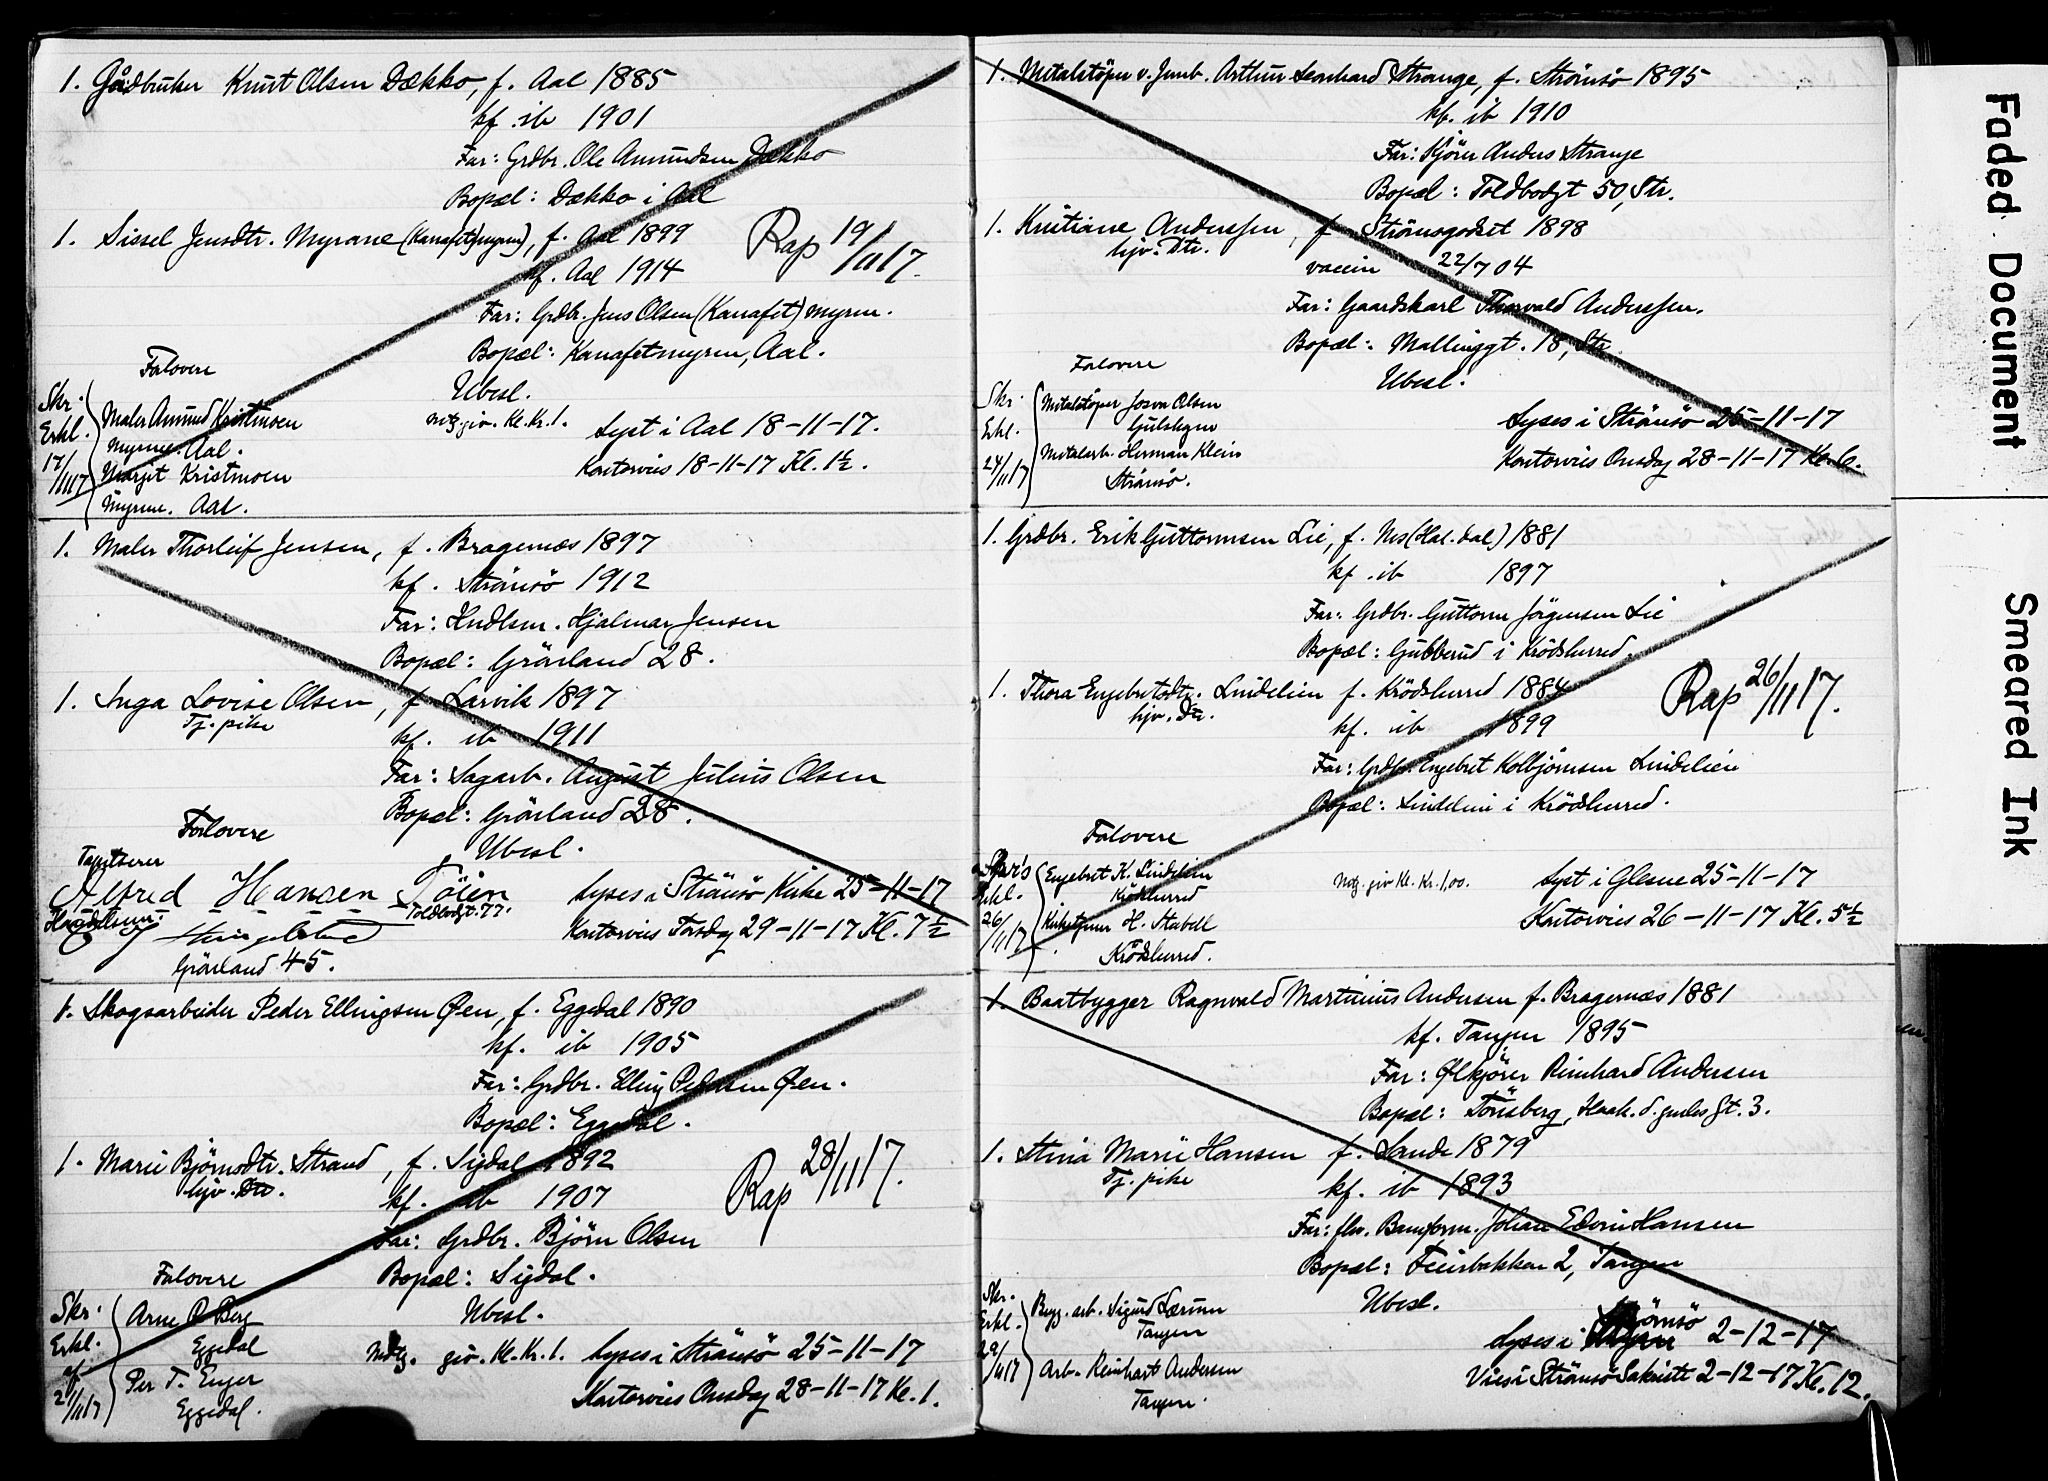 1. Gårdbruker Knut Olsen Dækko, f. Aal 1885
kf. ib 1901
Far: Grdbr. Ole Amundsen Dækko
Bopæl: Dækko i Aal
1. Sissel Jensdtr. Myrane (Kanafetmyren), f. Aal 1899
Rap 19/1117.
kf. Aal 1914
Far: Grdbr. Jens Olsen (Kanafet) myren.
Bopæl: Kanafetmyren, Aal.
Forlovere
Ubesl.
Skr. Erkl. 17/1117
Maler Amund Kristmoen
Myrene. Aal.
Margit Kristmoen
Myrene. Aal.
motg. giv. Kl. Kr. 1.
Lyst i Aal 18-11-17.
Kontorvies 18-11-17 Kl. 1½.
1. Maler Thorleif Jensen, f. Bragernæs 1897
kf. Strömsö 1912
Far: Hndlsm. Hjalmar Jensen
Bopæl: Grönland 28.
1. Inga Lovise Olsen, f. Larvik 1897
Tj. pike
kf. ib 1911
Far: Sagarb. August Julius Olsen
Bopæl: Grönland 28.
Forlovere
Ubesl.
Tapetserer
Alfred Hansen Töien
Toldbodgt. 77.
Grönland 45.
Lyses i Strömsö Kirke 25-11-17
Kontorvies Torsdag 29-11-17 Kl. 7½
1. Skogsarbeider Peder Ellingsen Øen, f. Eggedal 1890
kf. ib 1905
Far: Grdbr. Elling Pedersen Øen.
Bopæl: Eggedal.
1. Marie Björnsdtr. Strand, f. Sigdal 1892
hjv. Dtr.
Rap 28/1117.
kf. ib 1907
Far: Grdbr. Björn Olsen
Bopæl: Sigdal.
Forlovere
Ubesl.
Skr. Erkl. af 2/1117
Arne P. Berg
Eggedal
Per T. Enger
Eggedal.
Motg. giv. Kl. Kr. 1.
Lyses i Strömsö 25-11-17
Kontorvies Onsdag 28-11-17 Kl. 1.
1. Metalstöper v. Jernb. Arthur Leonhard Strange, f. Strömsö 1895
kf. ib 1910
Far: Kjörer Anders Strange
Bopæl: Toldbodgt 50, Str.
1. Kristiane Anderssen, f. Strömsgodset 1898
hjv. Dtr.
vaccin 22/7 04
Far: Gaardskarl Thorvald Anderssen.
Bopæl: Mallinggt. 18, Str
Forlovere
Ubesl.
Skr. Erkl. 24/1117
Metalstöper Josva Olsen
Gulskogen
Metalarb. Herman Klein
Strömsö.
Lyses i Strömsö 25-11-17
Kontorvies Onsdag 28-11-17 Kl. 6.
1. Grdbr. Erik Guttormsen Lie, f. Nes (Hal. dal) 1881
kf. ib 1897
Far: Grdbr. Guttorm Jörgensen Lie
Bopæl: Gubberud i Krödsherred.
1. Thora Engebretsdtr. Lindelien f. Krödsherred 1884
hjv. Dtr.
Rap 26/1117.
kf. ib 1899
Far: Grdbr. Engebret Kolbjörnsen Lindelien
Bopæl: Lindelien i Krödsherred.
Forlovere
Erkl. 26/1117
Engebret K. Lindelien
Krödsherred
Kirketjener H. Stabell
Krödsherred.
Motg. giv Kl. Kr. 1,00.
Lyst i Glesne 25-11-17
Kontorvies 26-11-17 Kl. 5½
1. Baatbygger Ragnvald Martinius Andersen f. Bragernæs 1881
kf. Tangen 1895
Far: Ølkjörer Reinhard Andersen
Bopæl: Tönsberg, Haak. d. godes Gt. 3.
1. Stina Marie Hansen f. Sande 1879
Tj. pike
kf. ib 1893
Far: fhv. Baneform. Johan Edvin Hansen
Bopæl: Feierbakken 2, Tangen
Ubesl.
Skr. Erkl. 29/1117
Bryg. arb. Sigurd Lærum
Tangen
Arb. Reinhart Andersen
Tangen.
Lyses i Strömsö 2-12-17
Vies i Strömsö Sakristi 2-12-17 Kl. 12.
Faded Document
Smeared Ink